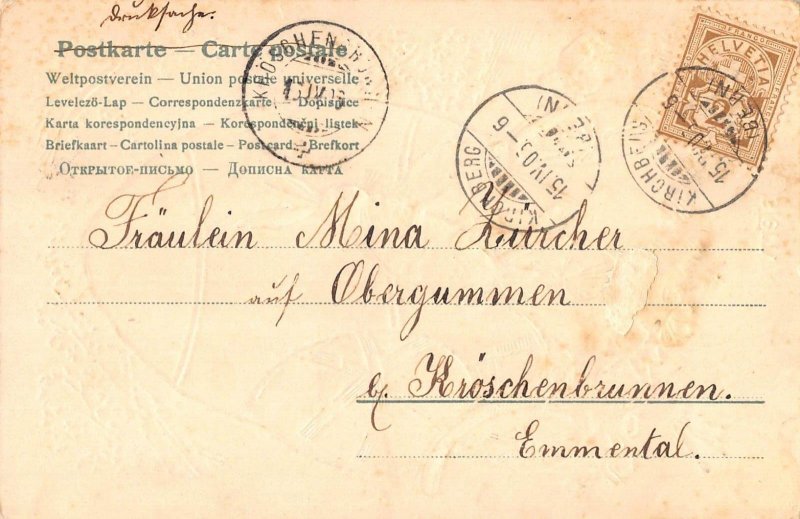 Drucksache.
Postkarte — Carte postale
Weltpostverein — Union postale universelle
Levelező-Lap — Correspondenzkarte — Dopisnice
Karta korespondencyjna — Korespondenčni listek
Briefkaart — Cartolina postale — Postcard — Brefkort
Открытое-письмо — Дописна карта
KRÖSCHENBRUNNEN
KIRCHBERG (BERN)
15.IV.05–6
KIRCHBERG (BERN)
HELVETIA
FRANCO
2
Fräulein Mina Zürcher
auf Obergummen
b. Kröschenbrunnen.
Emmental.